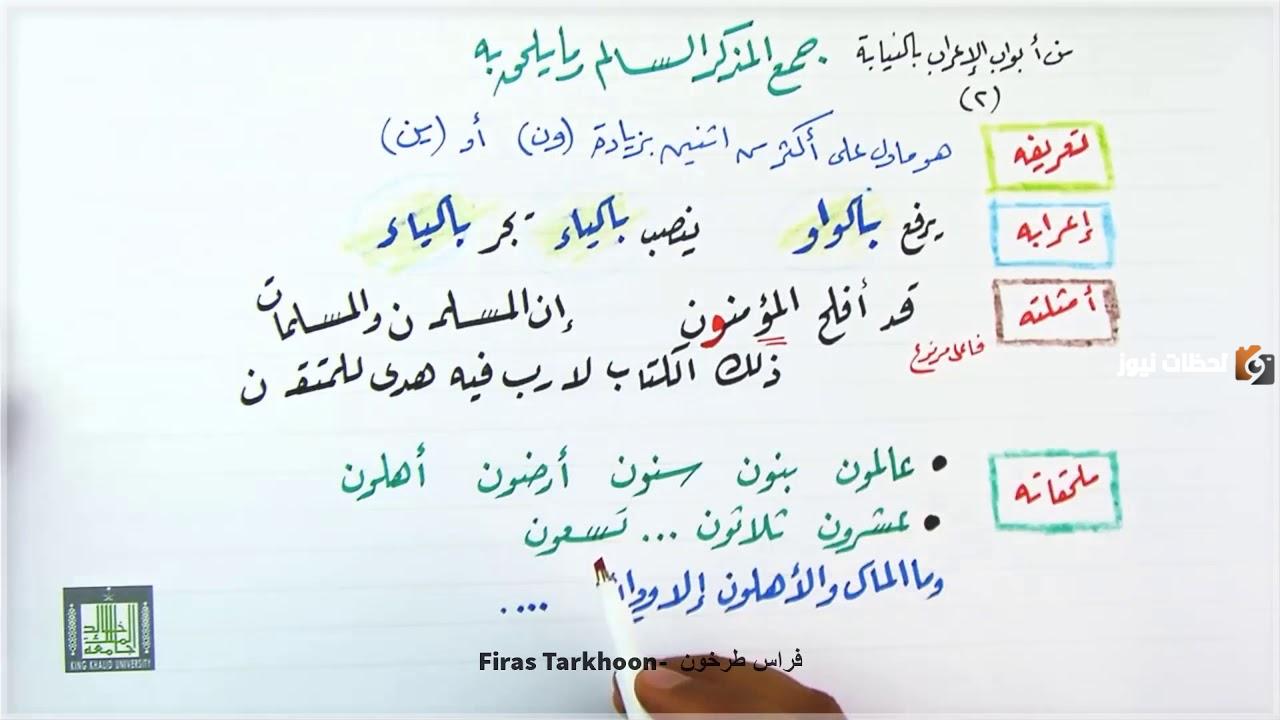 من أبواب الإعراب بالنيابة
(٢)
جمع المذكر السالم وما يلحق به
تعريفه
هو ما دل على أكثر من اثنين بزيادة (ون) أو (ين)
إعرابه
يرفع بالواو ينصب بالياء - يجر بالياء
أمثلته
قد أفلح المؤمنون إن المسلمـ ن والمسلمات
فاعل مرفوع
ذلك الكتاب لا ريب فيه هدى للمتقـ ن
لحظات نيوز
ملحقاته
• عالمون بنون سنون أرضنون أهلون
• عشرون ثلاثون ... تسعون
وما المال والأهلون إلا ....
جامعة الملك خالد
KING KHALID UNIVERSITY
Firas Tarkhoon- فراس طرخون